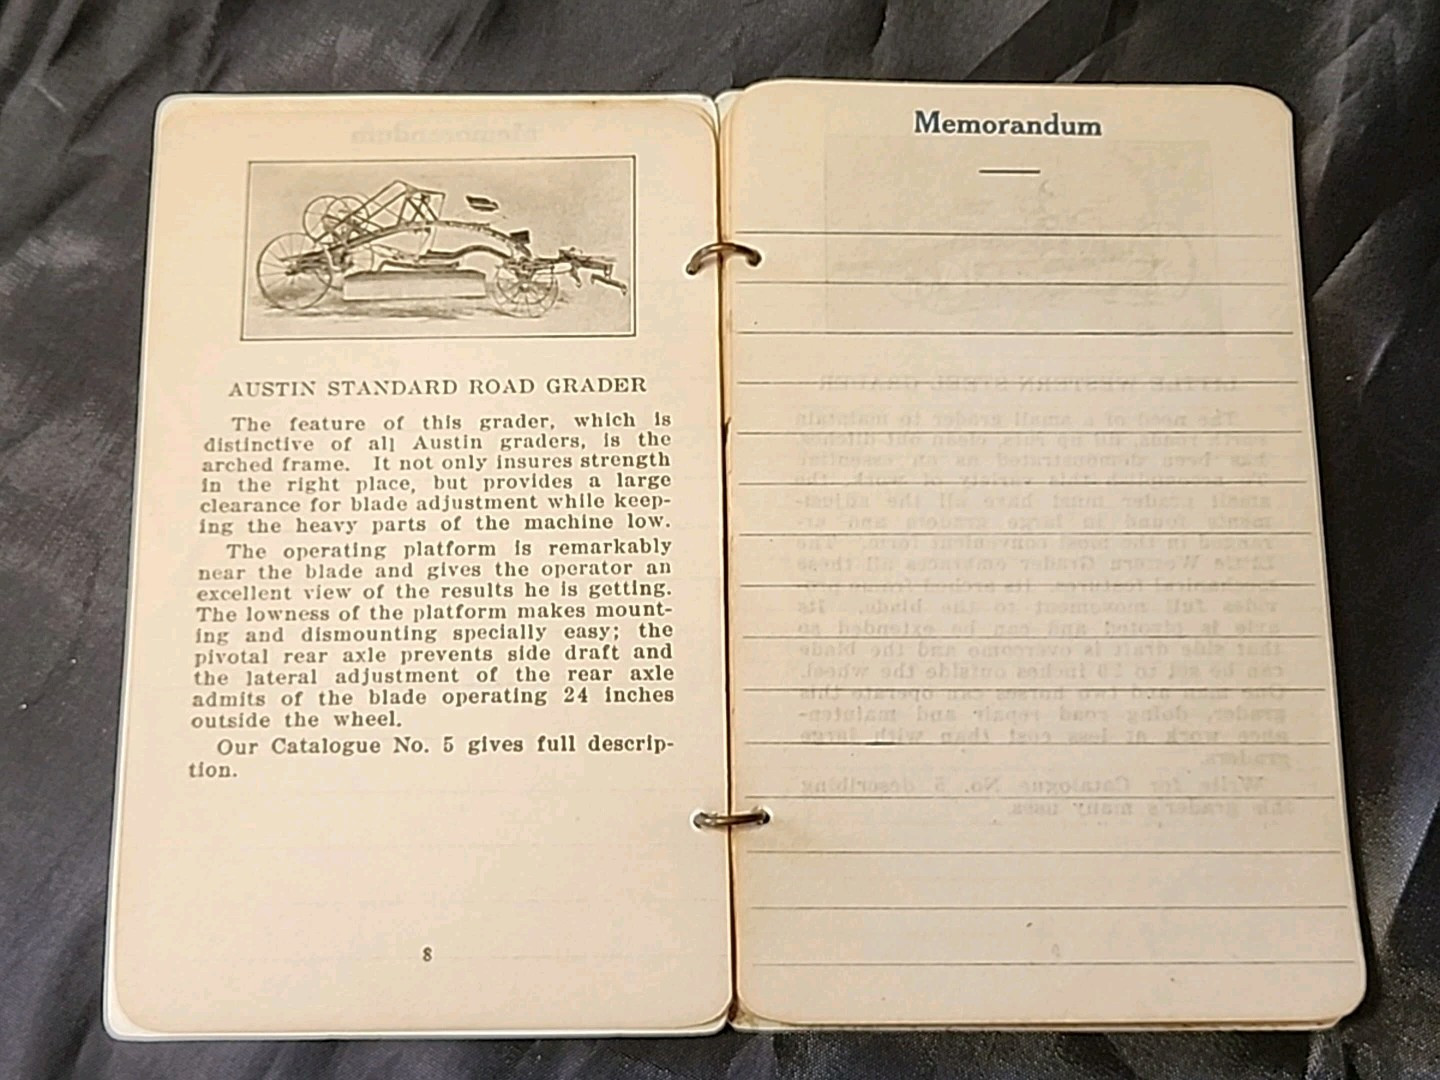 AUSTIN STANDARD ROAD GRADER
The feature of this grader, which is
distinctive of all Austin graders, is the
arched frame. It not only insures strength
in the right place, but provides a large
clearance for blade adjustment while keep-
ing the heavy parts of the machine low.
The operating platform is remarkably
near the blade and gives the operator an
excellent view of the results he is getting.
The lowness of the platform makes mount-
ing and dismounting specially easy; the
pivotal rear axle prevents side draft and
the lateral adjustment of the rear axle
admits of the blade operating 24 inches
outside the wheel.
Our Catalogue No. 5 gives full descrip-
tion.
8
Memorandum